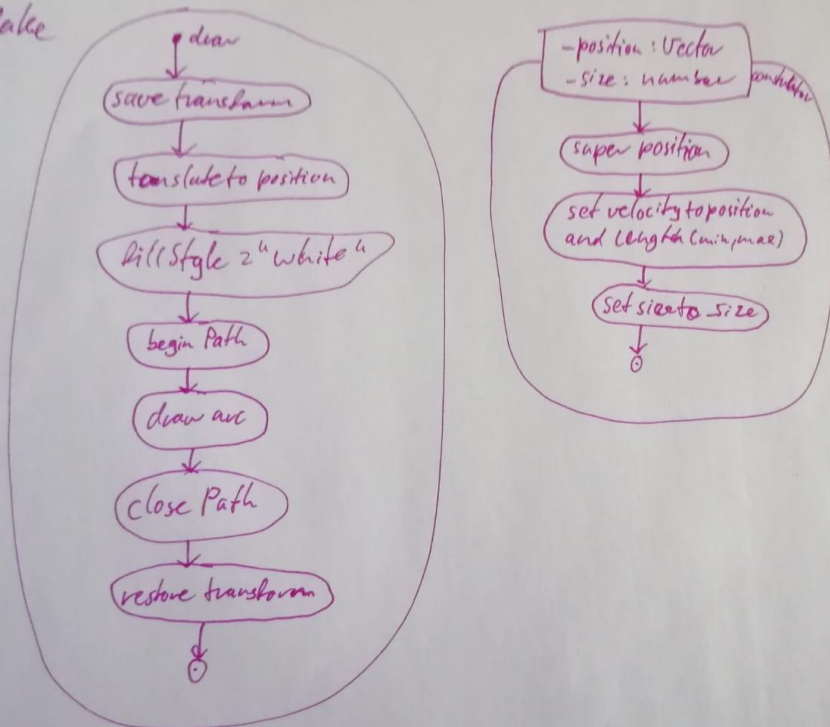 draw
save transform
translate to position
fillStyle = "white"
begin Path
draw arc
close Path
restore transform
-position : Vector
-size : number
constructor
super position
set velocity to position
and length (min, max)
set size to size